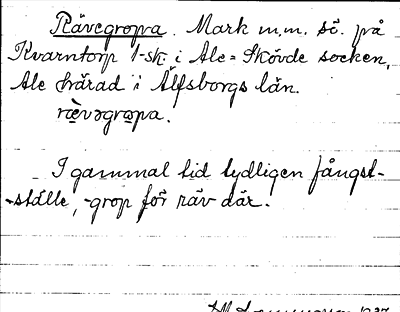 Rävegropa. Mark m.m. sö. på
Kvarntorp 1-sk. i Ale-Skövde socken,
Ale härad i Älfsborgs län.
rävəgropa.
I gammal tid tydligen fångst-
-ställe, -grop för räv där.